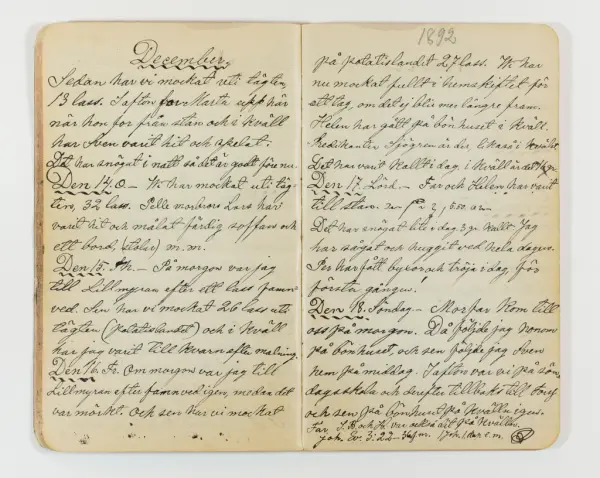 December.
Sedan har vi mockat uti tägten,
13 lass. I afton for Marta upp här
när hon for från stan och i kväll
har Sven varit hit och spelat.
Det har snögat i natt så det är godt före nu.
Den 14. O – Vi har mockat uti täg-
ten, 32 lass. Pelle morbrors Lars har
varit hit och målat färdig soffan och
ett bord, m.m.
Den 15. Th. – På morgon var jag
till Lillmyran efter ett lass famn-
ved. Sen har vi mockat 26 lass uti
tägten (potatislandet) och i kväll
har jag varit till kvarn efter malning.
Den 16. Fr. Om morgon var jag till
Lillmyran efter famnved igen, medan det
var mörkt. och sen har vi mockat
1892
på potatislandet 27 lass. Vi har
nu mockat fullt i hemskiftet för
ett tag, om det ej blir mer längre fram.
Helen har gått på bönhuset i kväll.
Predikanter Sjögren är der, likaså i kväll
Det har varit kallt i dag, i kväll är det gr.
Den 17. Lörd. – Far och Helen har varit
till stan.
Det har snögat lite i dag 3 gr. kallt. Jag
har sågat och huggit ved hela dagen.
Per har fått byxor och tröja i dag, för
första gången!
Den 18. Söndag – Morfar kom till
oss på morgon. Då följde jag honom
på bönhuset, och sen följde jag Sven
hem på middag. I afton var vi på sön-
dagsskola och derefter tillbaks till
och sen på bönhuset på kvälln igen.
Far, S.B. och H. var också dit på kvälln.
Joh. Ev. 3: 22–36 f.m. 1 Joh. 1 kap. e.m.